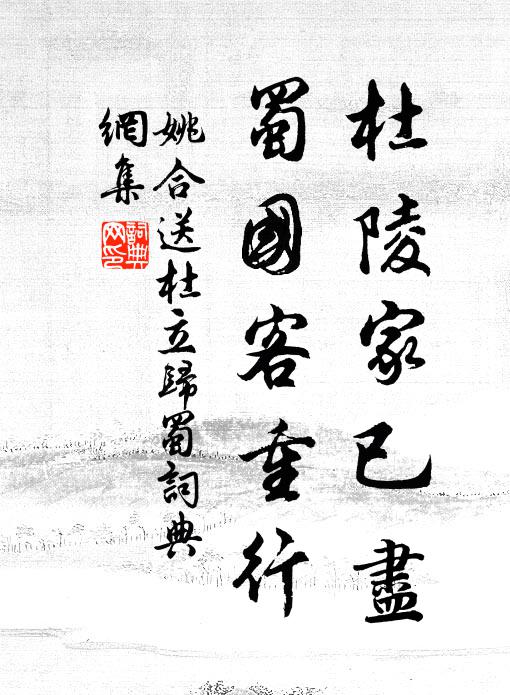 杜陵家已盡
蜀國客重行
姚合送杜立歸蜀詞典
網集
詞典網印